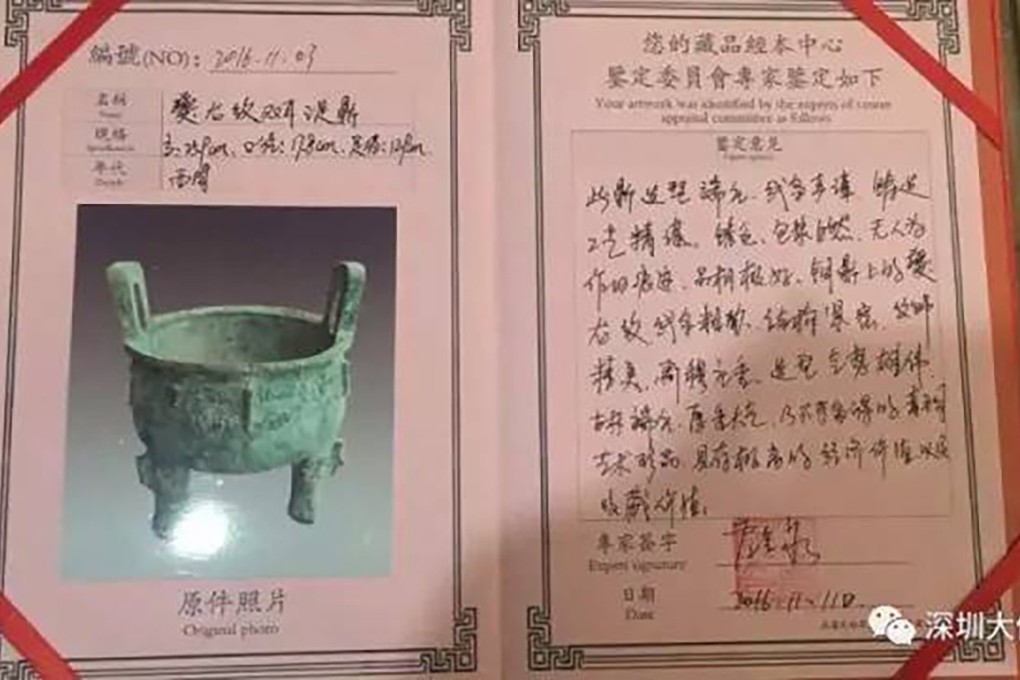 編號(NO)：2016.11.03
名稱
Name
夔龙纹双耳汉鼎
規格
Specification
高:23.9cm、口径:17.8cm、足橋:12.9cm
年代
西周
原件照片
Original photo
您的藏品經本中心
鑒定委員會專家鑒定如下
Your artwork was identified by the experts of center
appraisal committee as follows
鑒定意見
此鼎造型端庄、线条丰满、铸造
工艺精湛。锈色、包浆自然、无人为
作旧痕迹、品相极好、铜鼎上的夔
龙纹线条粗犷、结构紧密、纹饰
精美、造型气势雄伟、
古朴端庄、厚重大气、乃不可多得的青铜
艺术珍品、具有极高的经济价值以及
收藏价值。
專家簽字
Expert signature
日期
Date
2016.11.11日
深圳大